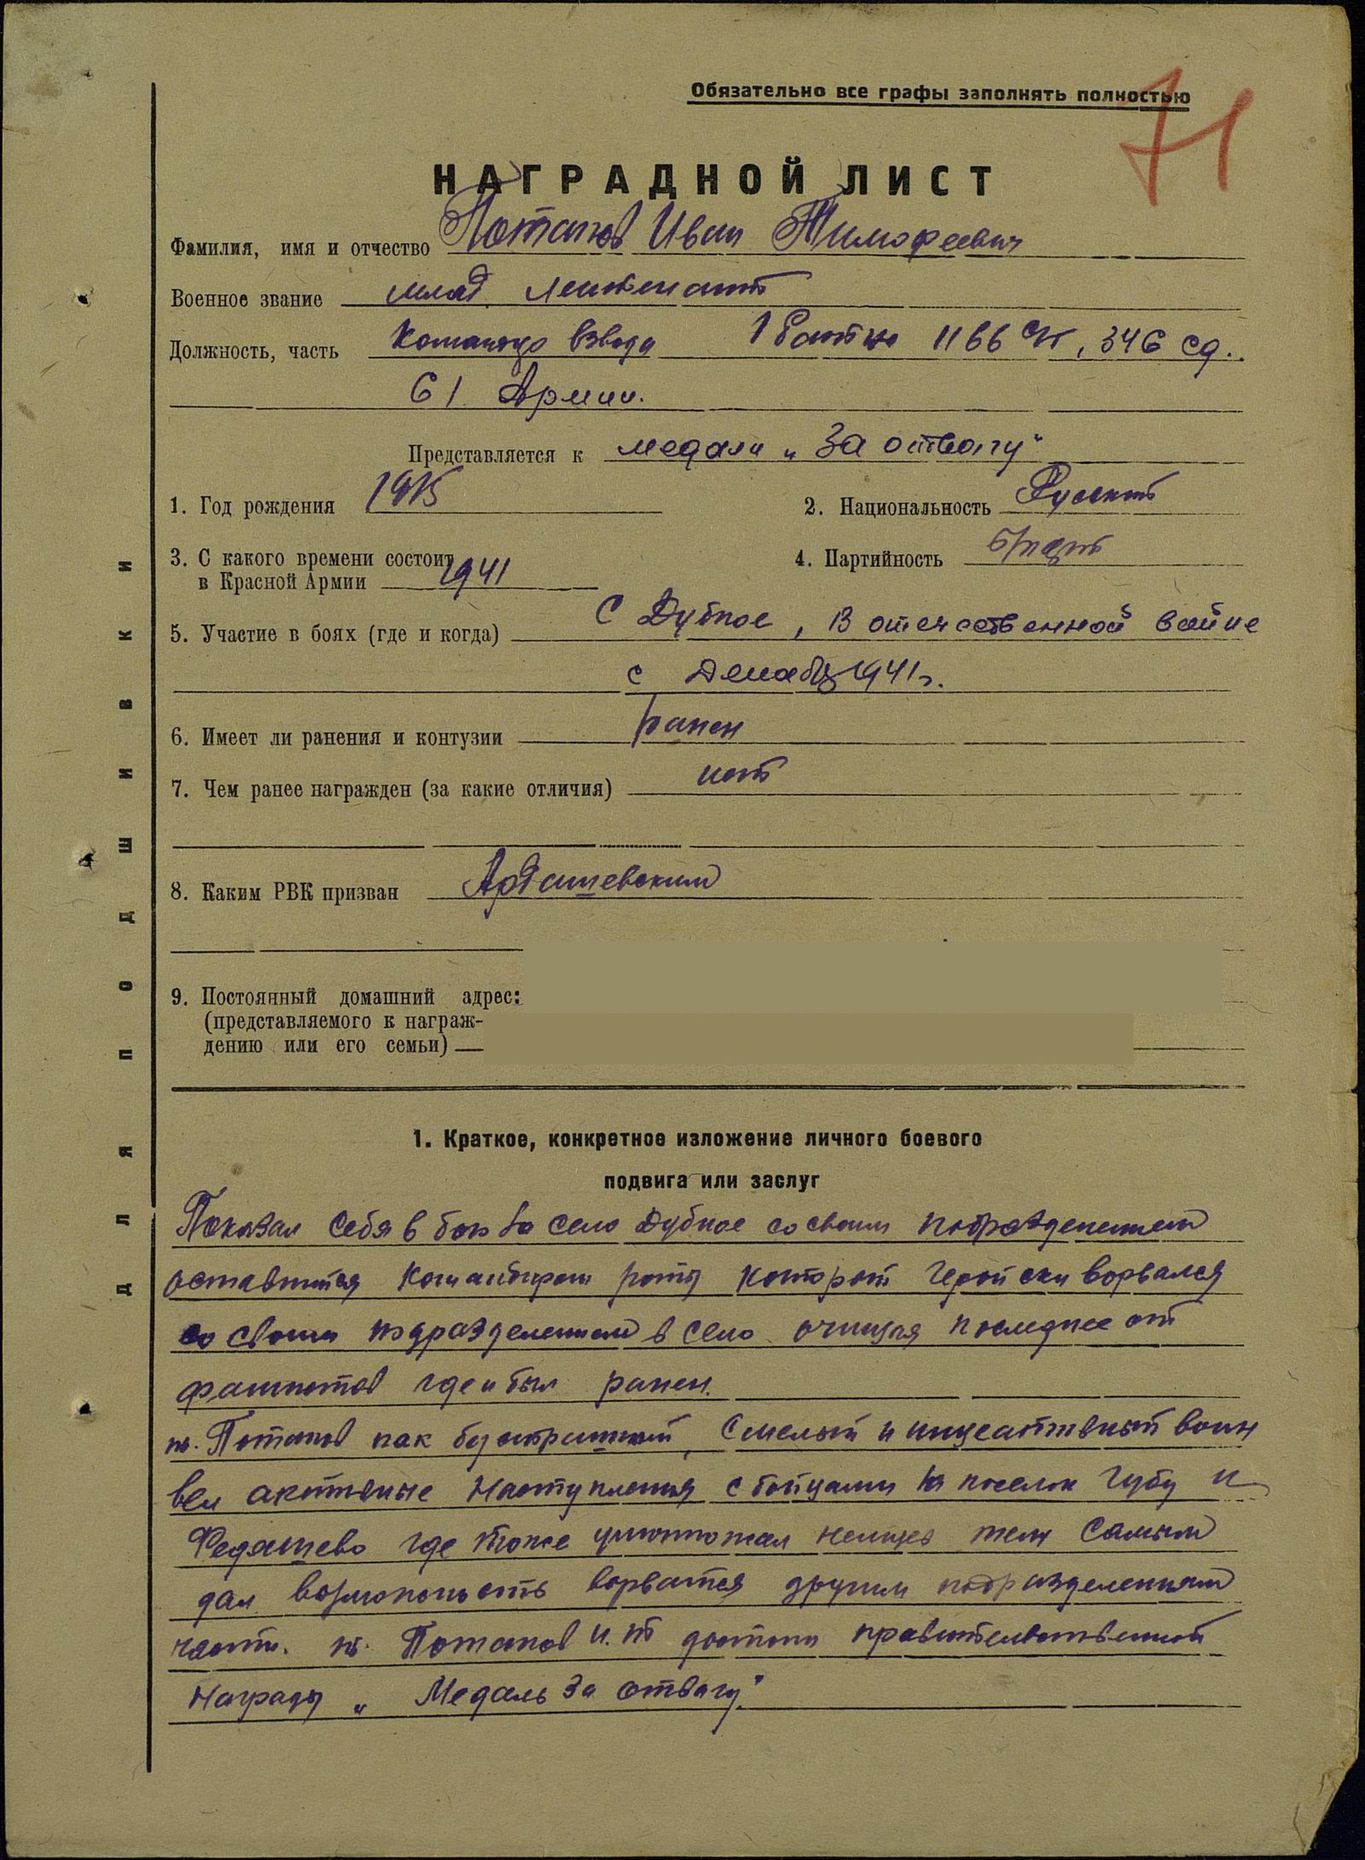 Обязательно все графы заполнять полностью
71
НАГРАДНОЙ ЛИСТ
Фамилия, имя и отчество Потапов Иван Тимофеевич
Военное звание млад. лейтенант
Должность, часть Командир взвода 1 бат-на 1166 СП, 346 сд.
61 Армии.
Представляется к медали „За отвагу"
1. Год рождения 1915
2. Национальность Русский
3. С какого времени состоит
в Красной Армии 1941
4. Партийность б/парт
5. Участие в боях (где и когда) С Дубное, В отечественной войне
с Декабр 1941г.
6. Имеет ли ранения и контузии ранен
7. Чем ранее награжден (за какие отличия) нет
8. Каким РВК призван
9. Постоянный домашний адрес:
(представляемого к награж-
дению или его семьи)
для подшивки
1. Краткое, конкретное изложение личного боевого
подвига или заслуг
Показал себя в бою за село Дубное со своим подразделением
оставшися командиром роты который геройски ворвался
со своим подразделением в село очищая последнее от
фашистов где и был ранен.
т. Потапов как безстрашный, смелый и инцеативный воин
вел активные наступления с бойцами на поселок Губу и
Федяшево где тоже уничтожал немцев тем самым
дал возможность ворватся другим подразделениям
части. т. Потапов И. Т достоин правительственной
Награды „Медаль За отвагу."